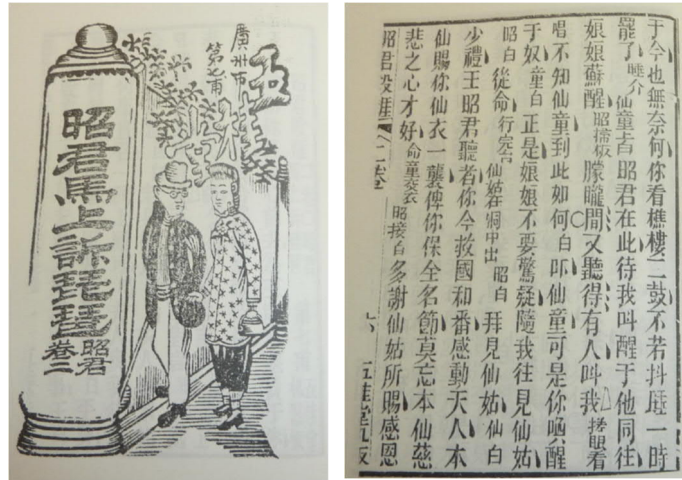 廣州市
第七甫
五桂堂
昭君馬上訴琵琶
昭君
卷二
于今也無奈何你看樵樓二鼓不若抖𭥍一時
罷了睡介仙童占昭君在此待我叫醒于他同往
娘娘蘇醒昭揞板朦朧間又聽得有人叫我捲眼看
唱不知仙童到此如何白叩仙童可是你喚醒
于奴童白正是娘娘不要驚疑隨我往見仙姑
昭白從命行完台仙姑在洞中出昭白拜見仙姑仙白
少禮王昭君聽者你今救國和番感動天人本
仙賜你仙衣一襲俾你保全名節莫忘本仙慈
悲之心才好命童交衣昭接白多謝仙姑所賜感恩
昭君投崖
上卷
六
五桂堂